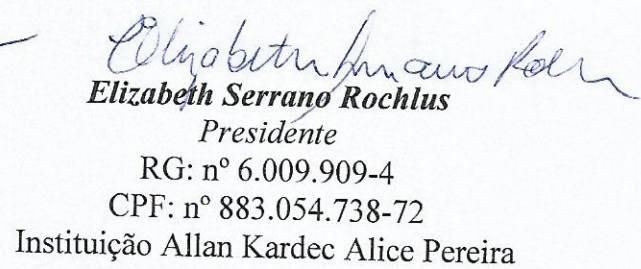 Elizabeth Serrano Rochlus
Presidente
RG: nº 6.009.909-4
CPF: nº 883.054.738-72
Instituição Allan Kardec Alice Pereira